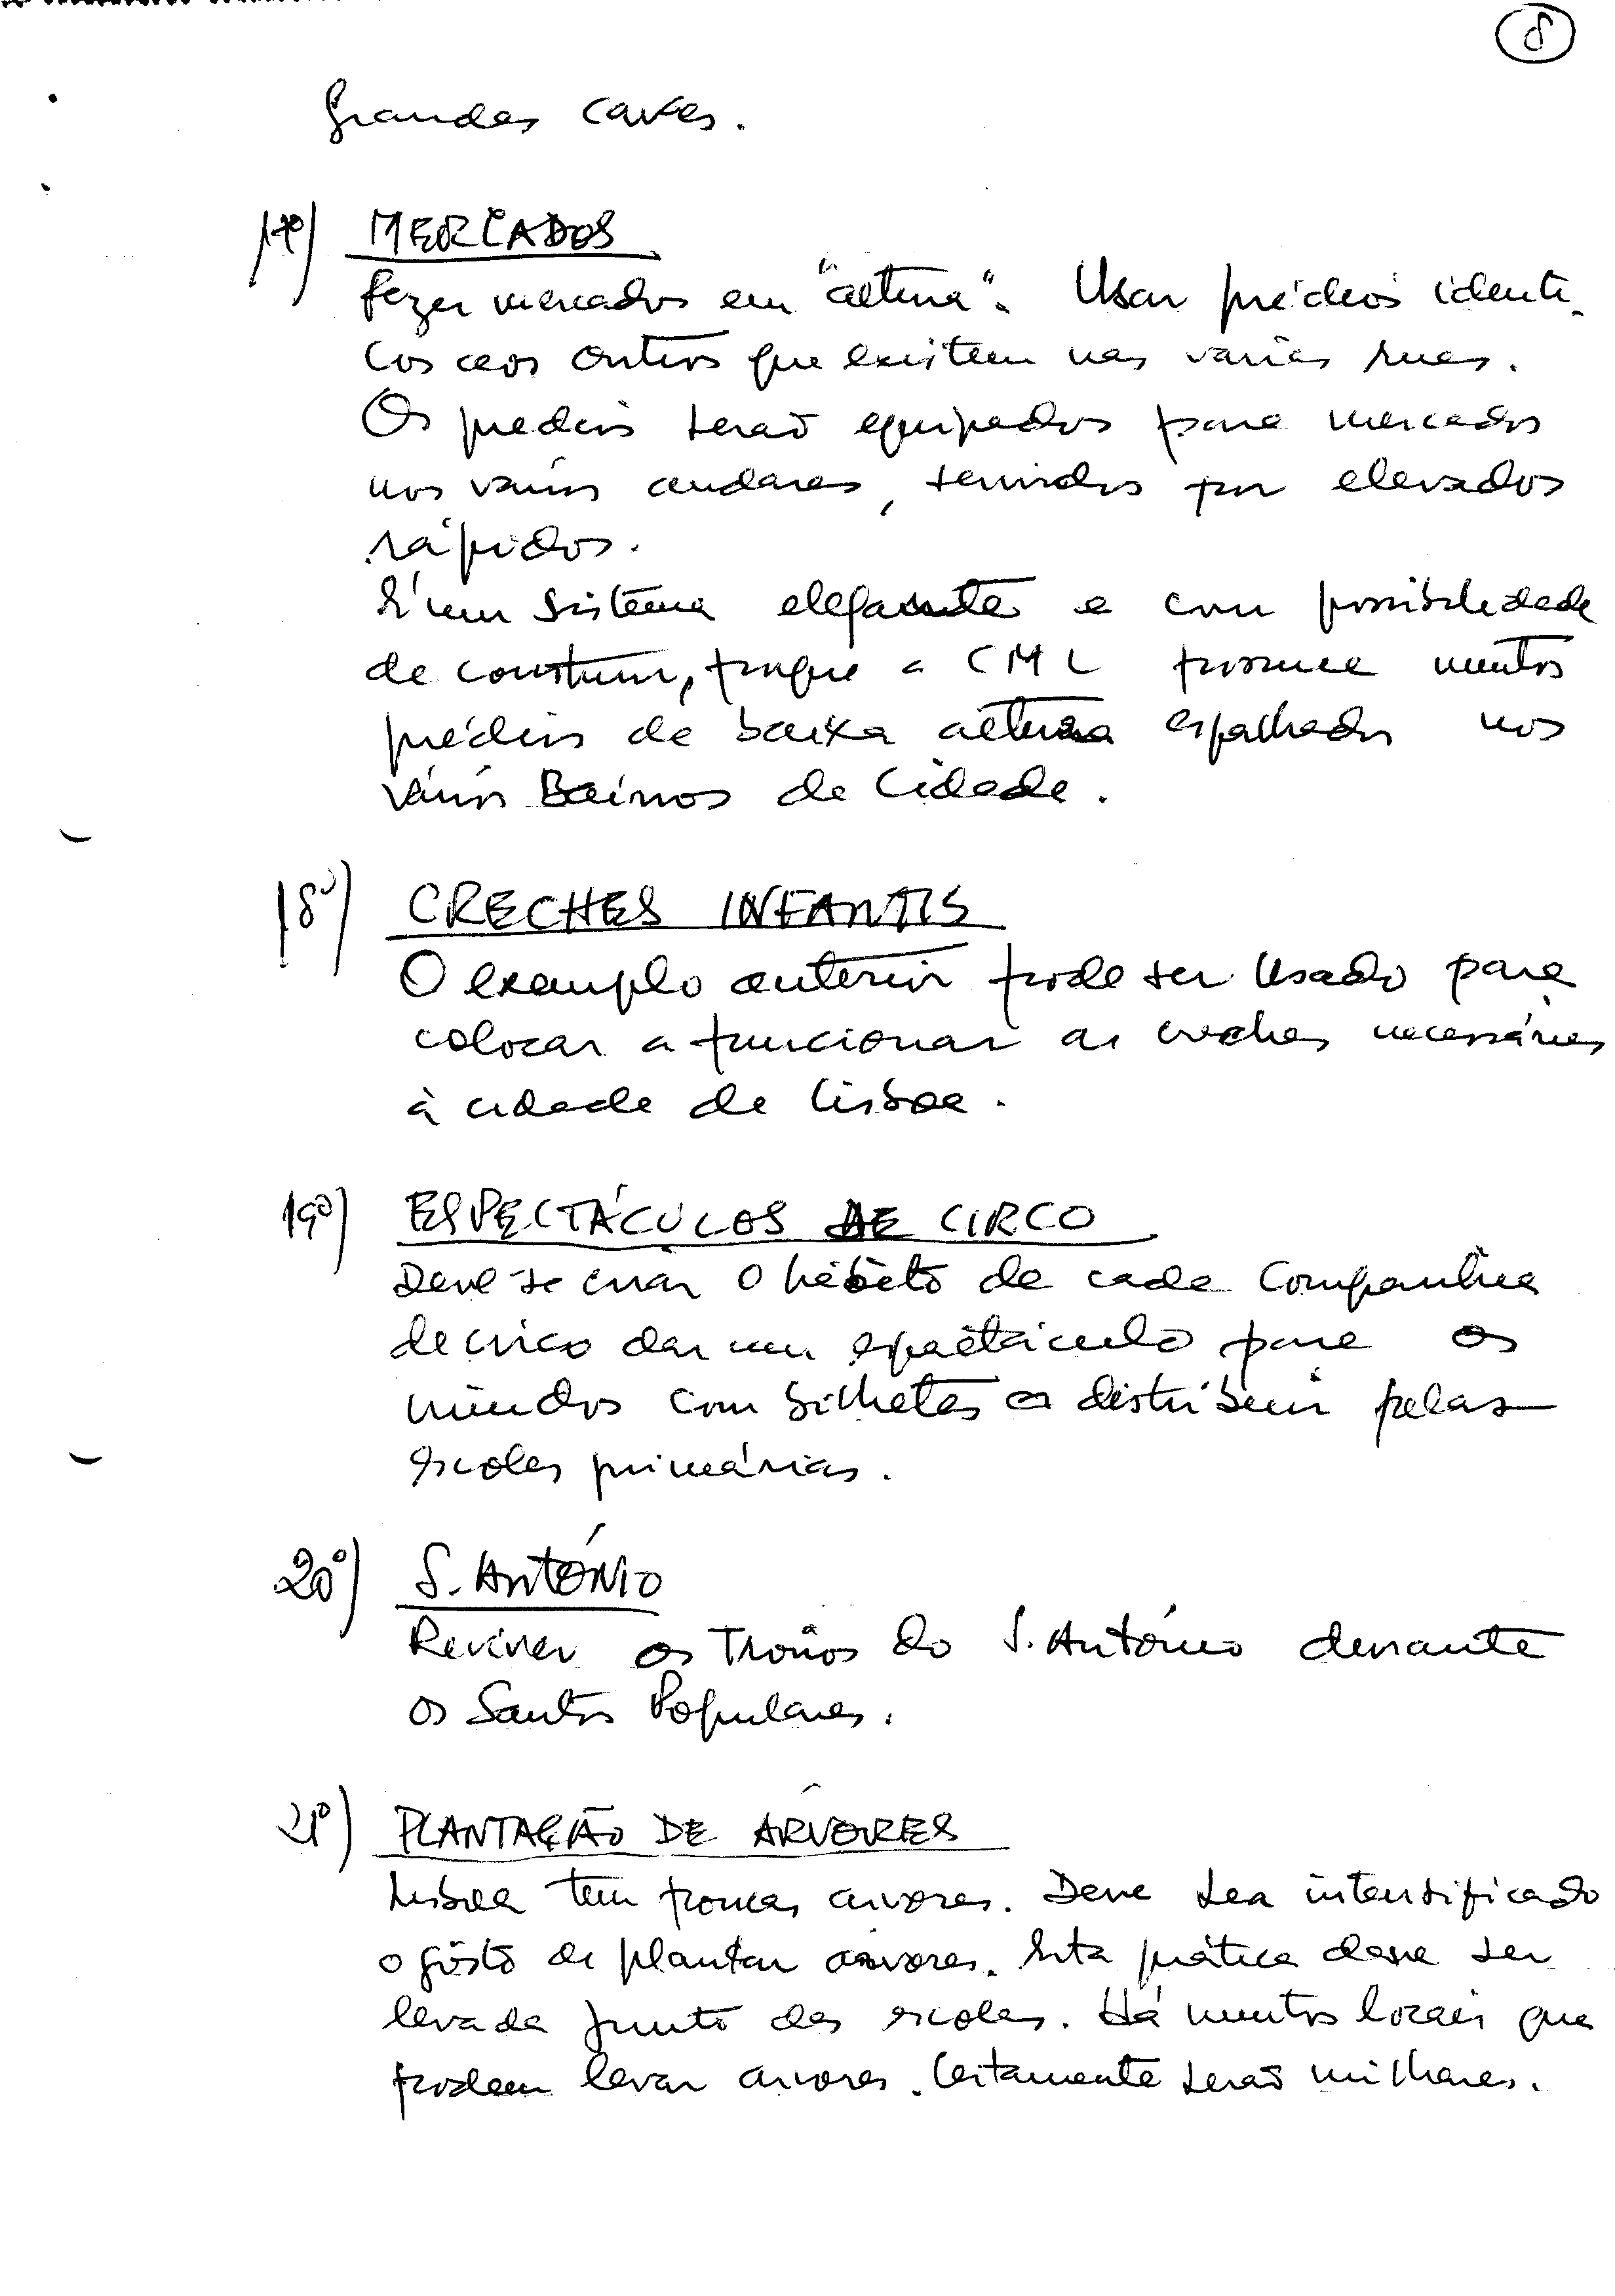 8
Grandes caves.
17º) MERCADOS
Fazer mercados em "altura". Usar prédios identi-
cos aos outros que existem nas várias ruas.
Os predios serão equipados para mercados
nos varios andares, servidos por elevados
rápidos.
É um sistema elegante e com possibilidade
de construir, porque a CML possue muitos
prédios de baixa altura espalhados nos
vários Bairros de Cidade.
18º) CRECHES INFANTIS
O exemplo anterior pode ser usado para
colocar a funcionar as creches necessárias
à cidade de Lisboa.
19º) ESPECTÁCULOS DE CIRCO
Deve-se criar o hábito de cada Companhia
de circo dar um espectáculo para os
miudos com bilhetes a distribuir pelas
escolas primárias.
20º) S. ANTÓNIO
Reviver os Tronos do S. António durante
os Santos Populares.
21º) PLANTAÇÃO DE ÁRVORES
Lisboa tem poucas arvores. Deve ser intensificado
o gôsto de plantar arvores. Esta prática deve ser
levada junto das escolas. Há muitos locais que
podem levar arvores. Certamente serão milhares.